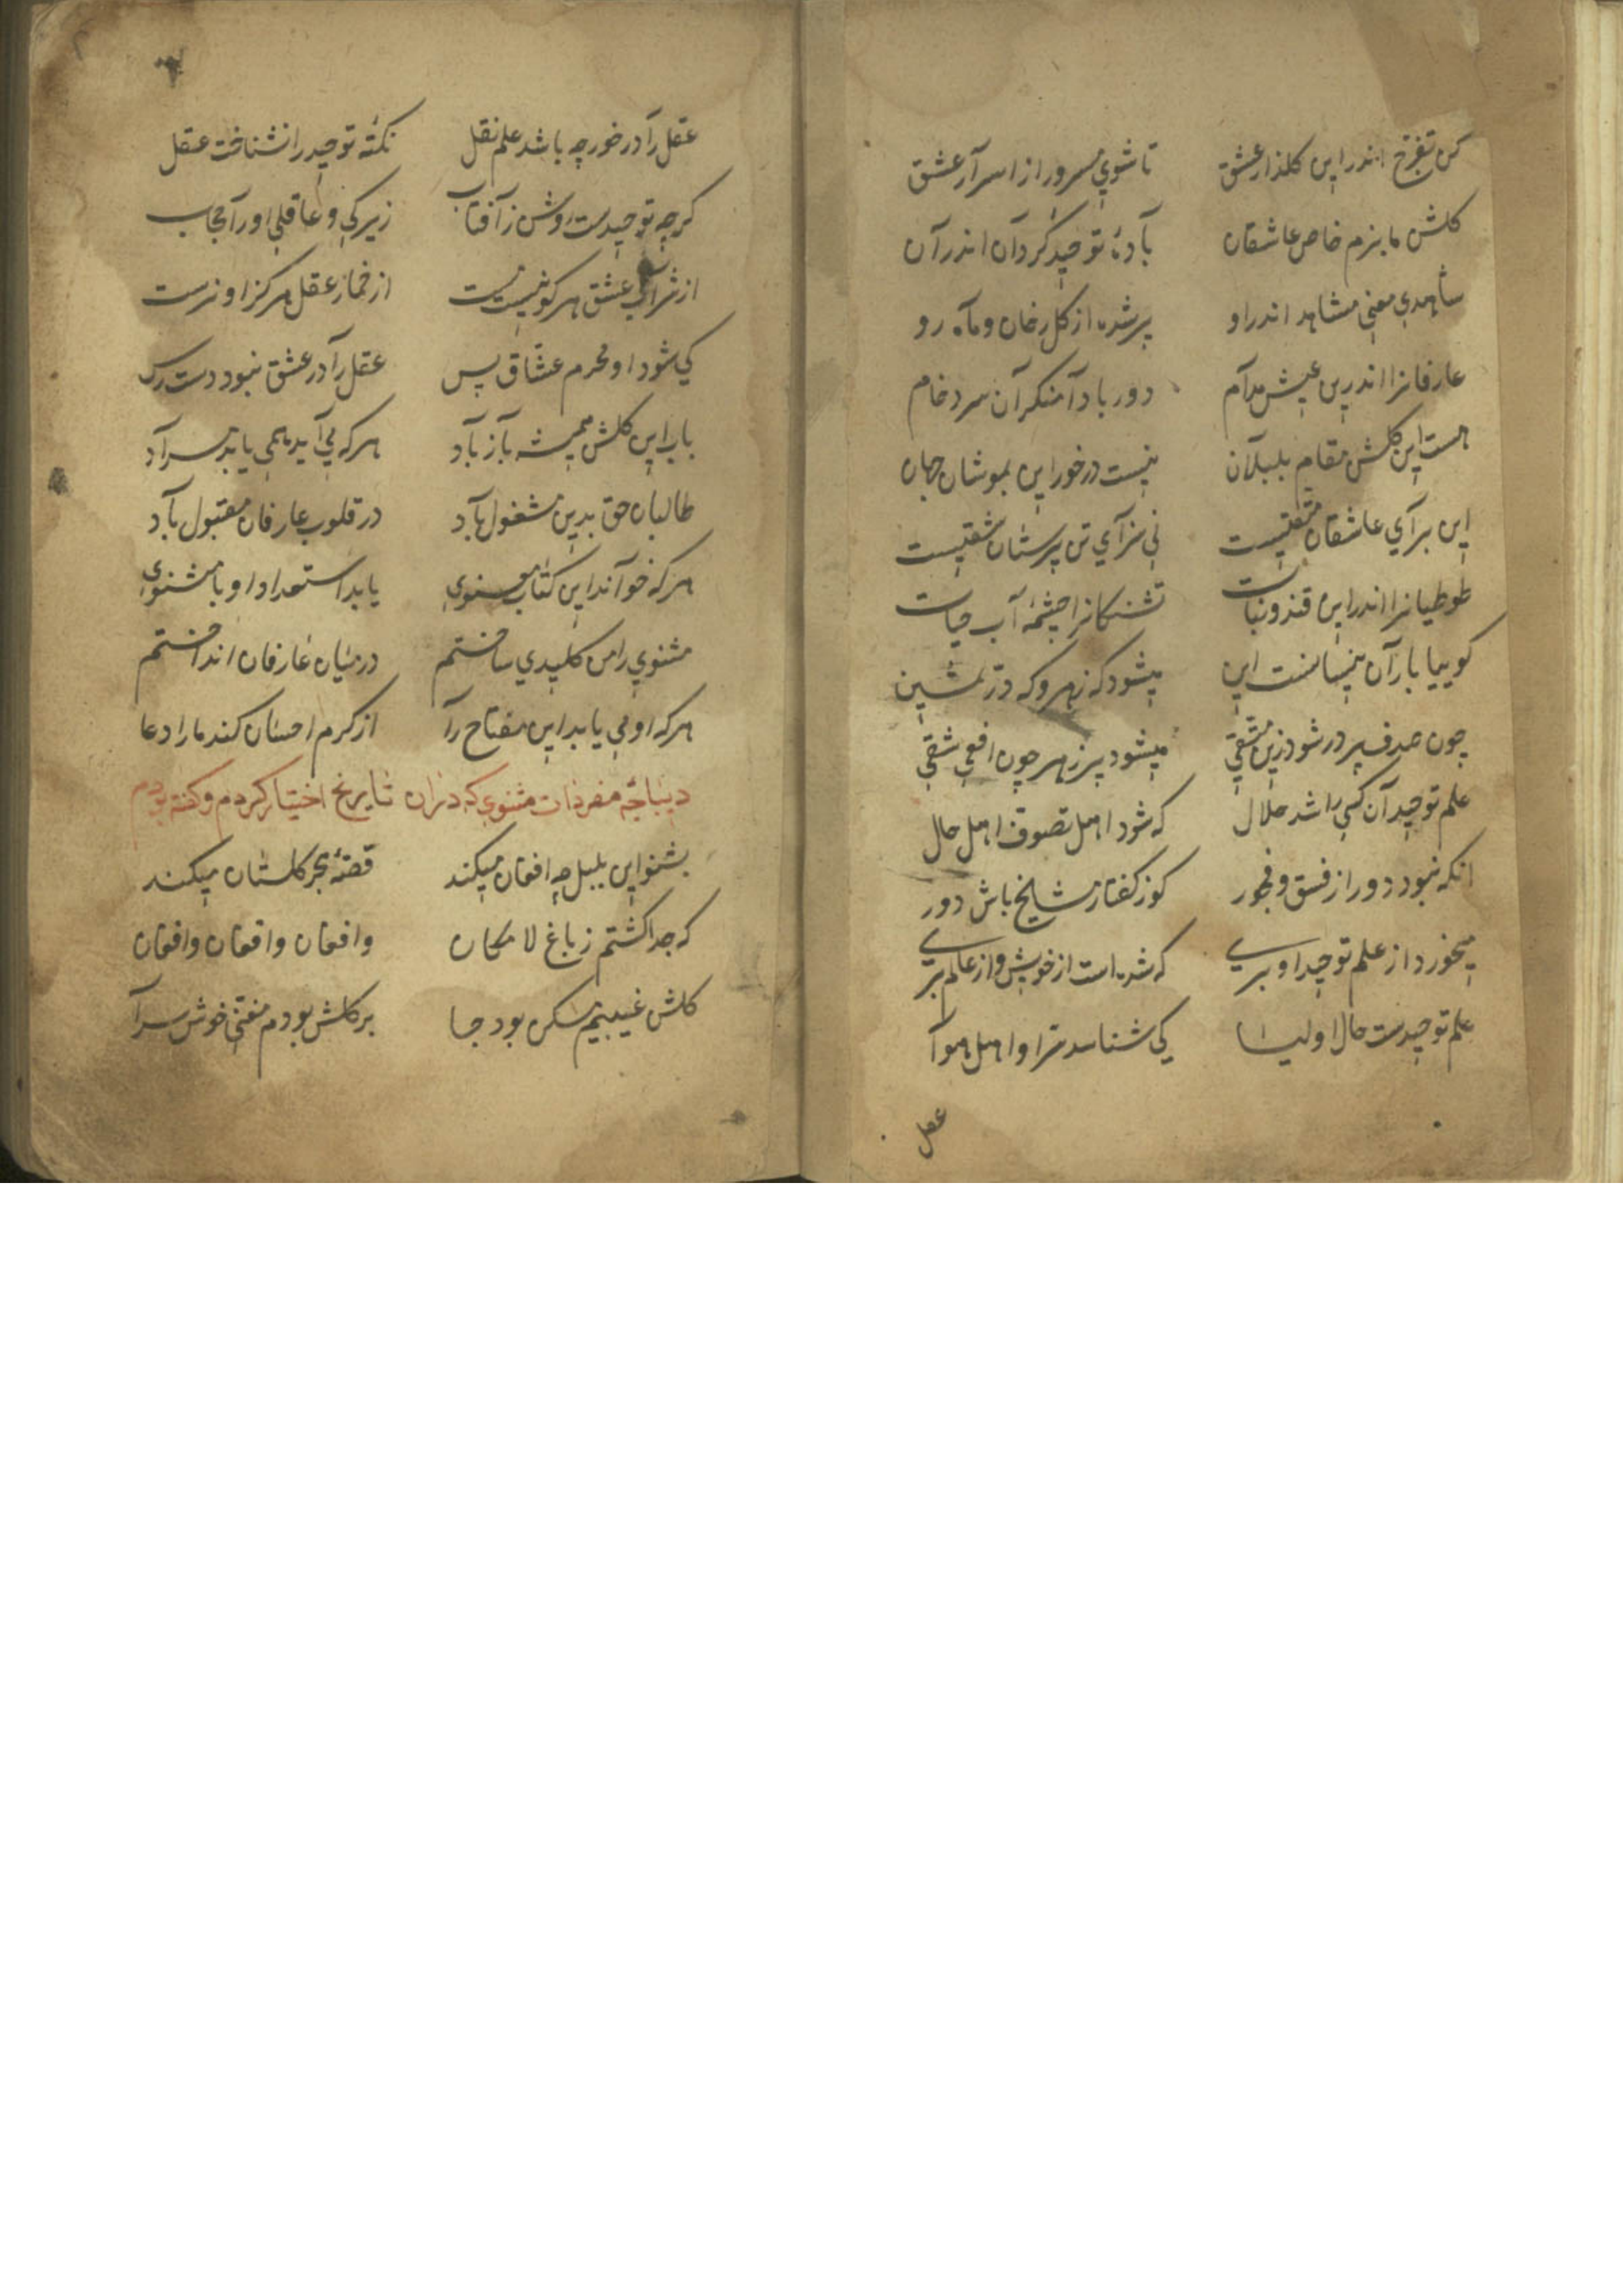 کن تفرّج اندر این کلذار عشق تا شوی مسرور از اسرآر عشق
کلشن ما بزم خاص عاشقان بآدهٔ توحید کردآن اندر آن
شاهدی معنی مشاهد اندر او پر شده از کل رخان و مآه رو
عارفانرا اندرین عیش مدآم دور باد آ منکرآن سرد خام
هست این کلشن مقام بلبلآن نیست در خور این بموشان جهان
این برآی عاشقان متقیست نی سزآی تن پرستان شقیست
طوطیانرا اندر این قند و نبات تشنکانرا چشمهٔ آب حیات
کوییا بارآن نیسانست این میشود که زهر و که درّ ثمین
چون صدف پر در شود زین متقی میشود پر زهر چون افعی شقی
علم توحید آن کسی را شد حلال که شود اهل تصوف اهل حال
انکه نبود دور از فسق و فجور کوز کفتار مشایخ باش دور
میخورد از علم توحید او بری که شده است از خویش و از عالم بری
علم توحیدست حال اولیا کی شناسد مر او را اهل هوآ
عقل
عقل رآ در خور چه باشد علم نقل نکتهٔ توحید را نشناخت عقل
کرچه توحیدست روشن ز آفتاب زیرکی و عاقلی او رآ حجاب
از شرآب عشق هر کو نیست مست از خمار عقل هرکز او نرست
کی شود او محرم عشّاق پس عقل رآ در عشق نبود دست رس
باب این کلشن همیشه بآز بآد هر که می آید همی یابد مرآد
طالبان حق بدین مشغول بآد در قلوب عارفان مقبول بآد
هر که خوآند این کتاب معنوی یابد استعداد او با مثنوی
مثنوی را من کلیدی ساختم در میان عارفان انداختم
هر که او می یابد این مفتاح رآ از کرم احسان کند ما را دعا
دیباجهٔ مفردات مثنوی که در آن تاریخ اختیار کردم و کفته بودم
بشنو این بلبل چه افغان میکند قصهٔ هجر کلستان میکند
که جدا کشتم ز باغ لا مکان وافغان وافغان وافغان
کلشن غیبیم مسکن بود جا بر کلش بودم مغنّی خوش سرآ